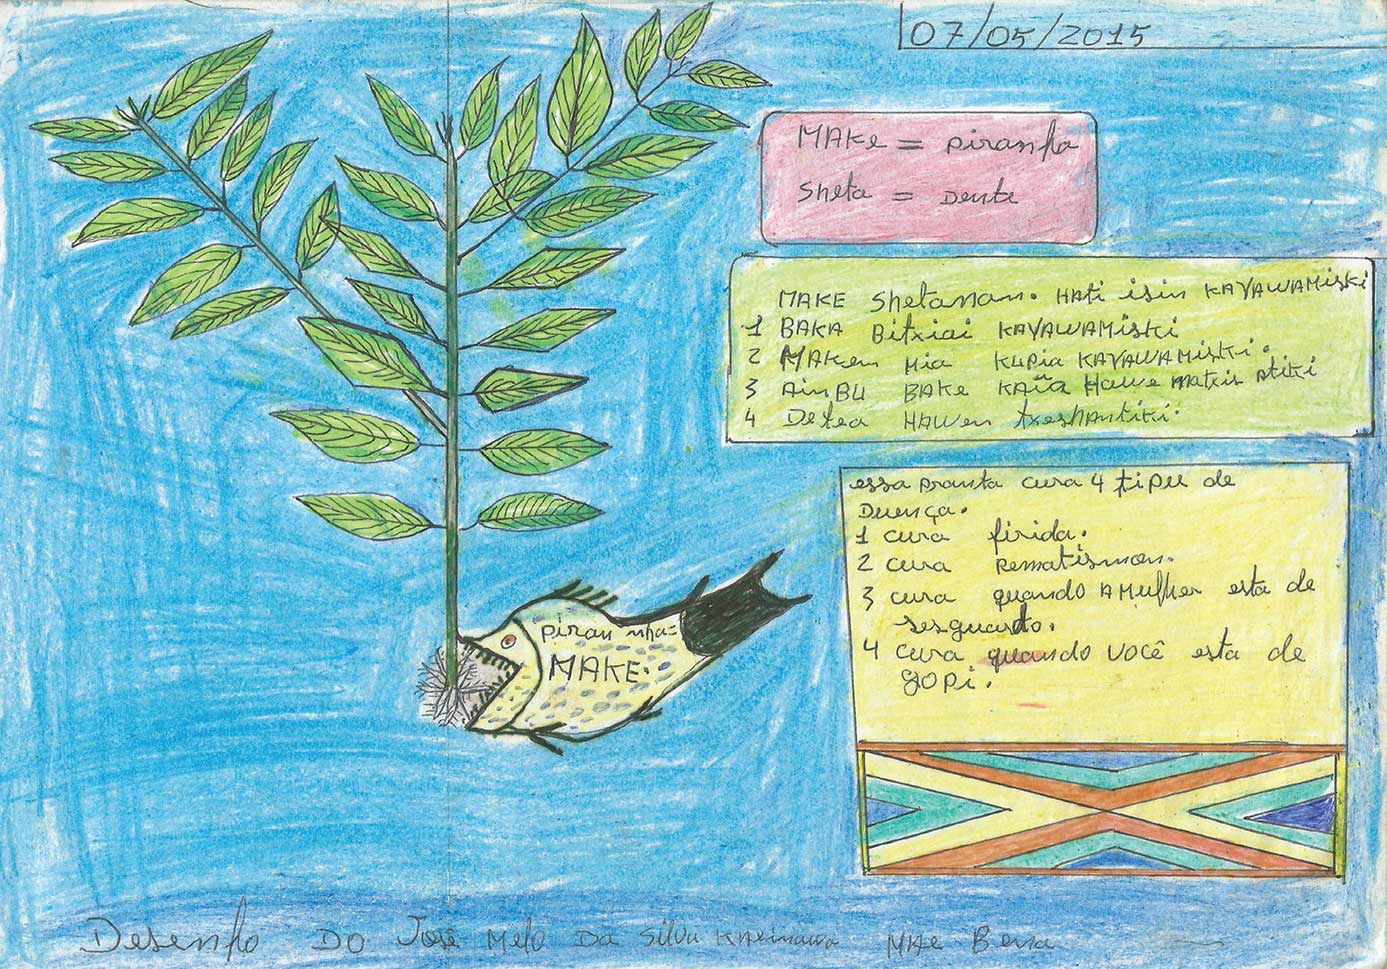 07/05/2015
MAKE = piranha
Sheta = Dente
MAKE Shetanan. HATi isin KAYAWAMISKI
1 BAKA Bitxiai KAYAWAMISKI
2 MAKEn Mia KUPIA KAYAWAMISKI.
3 AinBU BAKE KAĩã HAWE matxin atiki
4 Detea HAWEn txeshantiki.
essa pranta cura 4 tipu de
Duença.
1 cura firida.
2 cura Rematismon.
3 cura quando A mulher esta de
resguardo.
4 cura quando você esta de
gopi.
piran nha=
MAKE.
Desenho Do José Melo Da Silva Kaxinawa MAE Bena